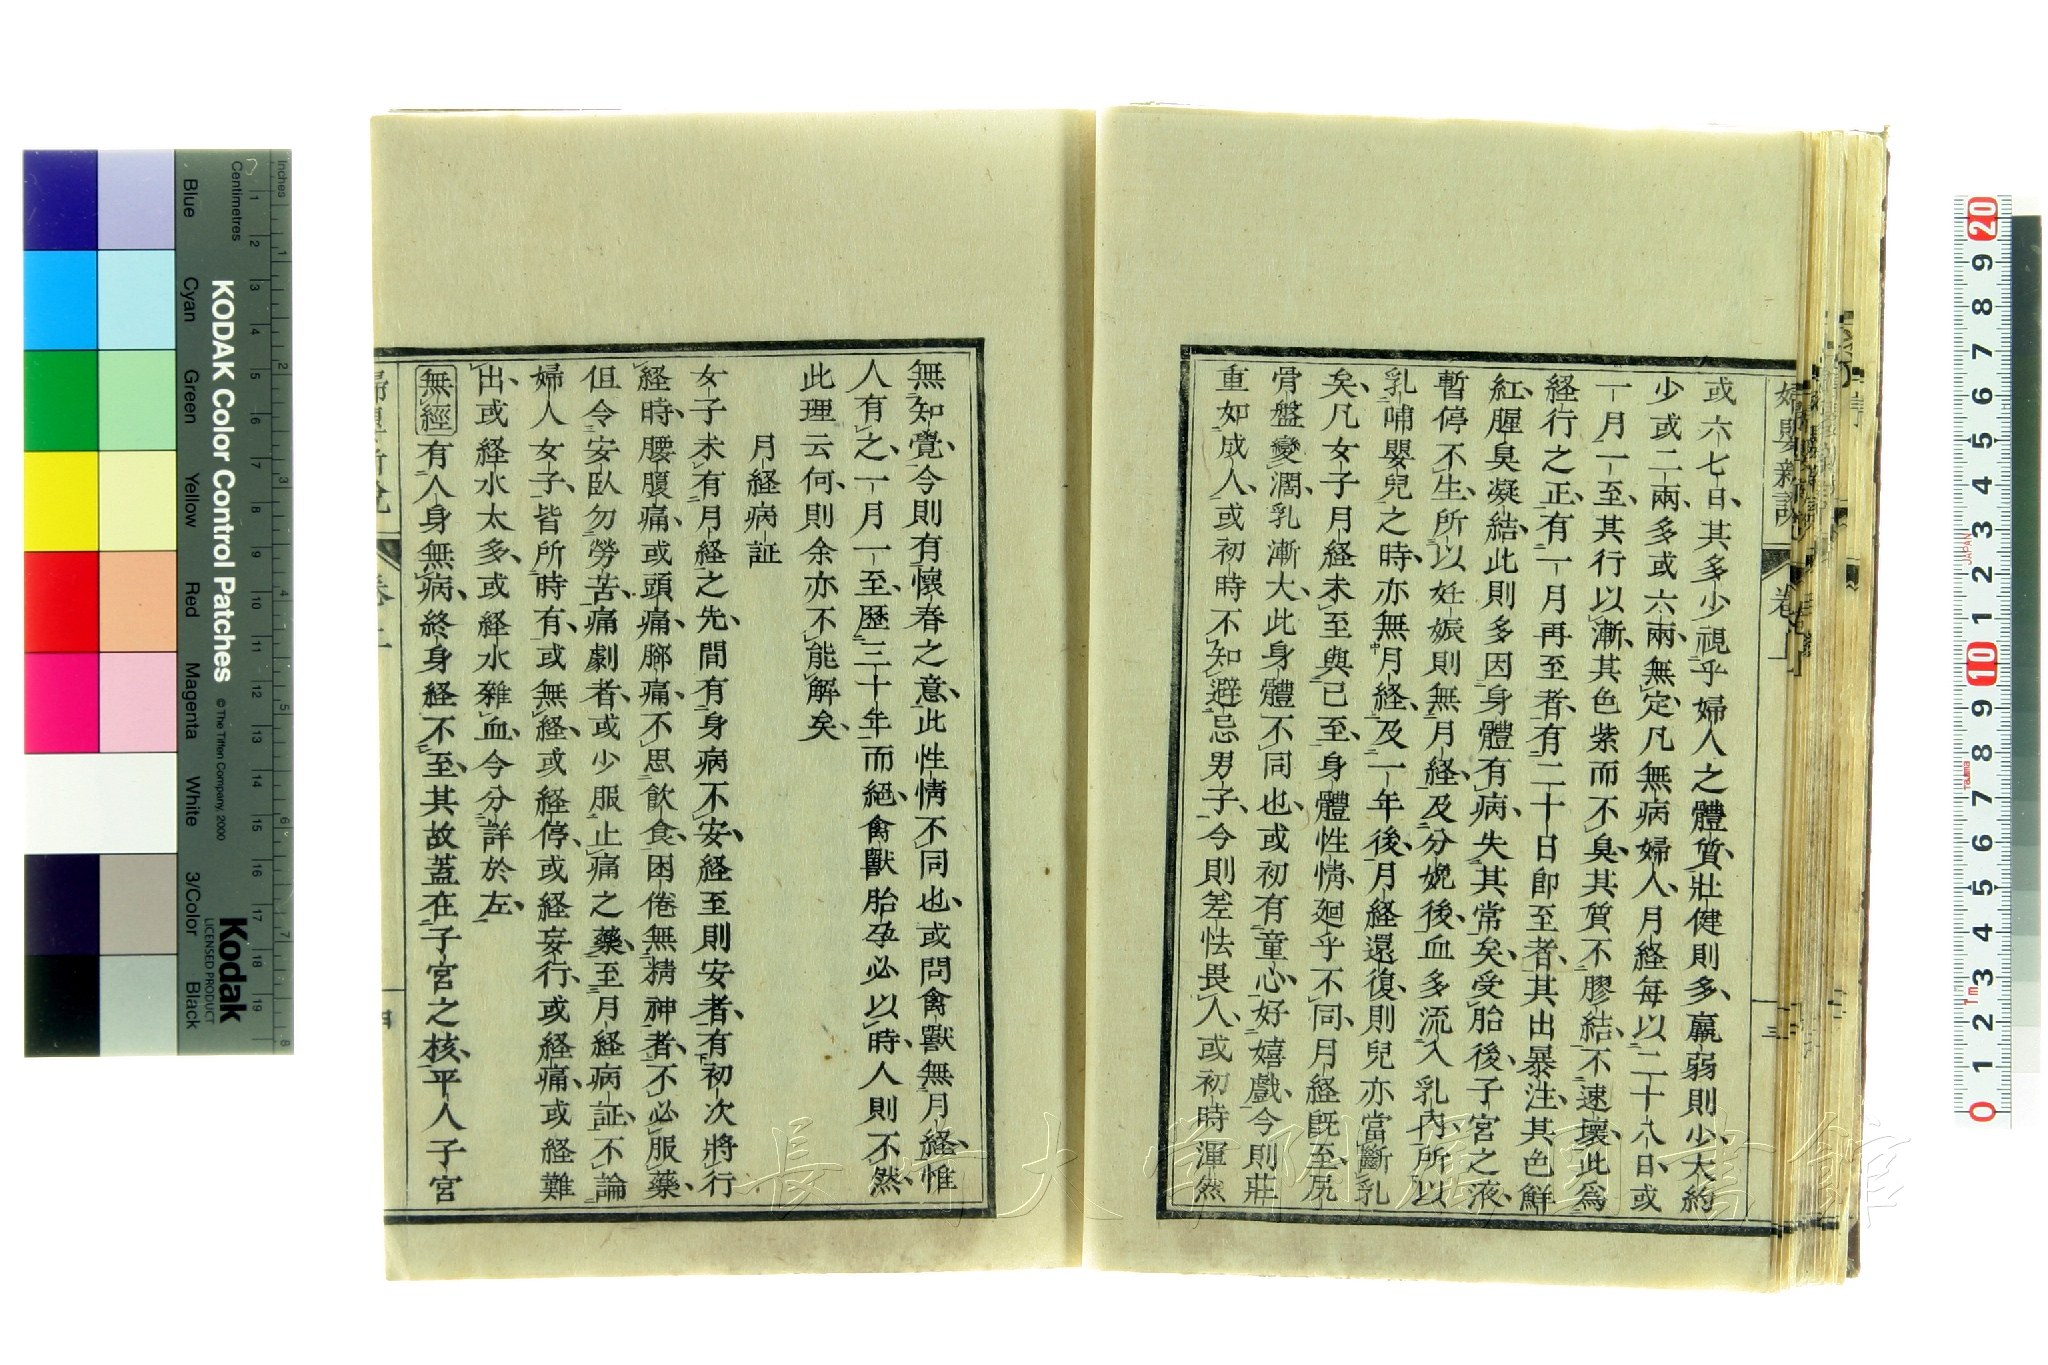 或六七日、其多少視乎婦人之體質、壯健則多、羸弱則少、大約
少或二兩、多或六兩、無定、凡無病婦人、月経每以二十八日、或
一月一至、其行以漸、其色紫而不臭、其質不膠結、不速壞、此爲
経行之正、有一月再至者、有二十日即至者、其出暴注、其色鮮
紅、腥臭凝結、此則多因身體有病、失其常矣、受胎後、子宮之液、
暫停不生、所以妊娠則無月経、及分娩後、血多流入乳內、所以
乳哺嬰兒之時、亦無月経、及一年後、月経還復、則兒亦當斷乳
矣、凡女子月経未至與已至、身體性情、廻乎不同、月経既至、尻
骨盤變濶、乳漸大、此身體不同也、或初有童心、好嬉戲、今則莊
重如成人、或初時不知避忌男子、今則羞怯畏人、或初時渾然
婦嬰新說
卷一
三
無知覺、今則有懷春之意、此性情不同也、或問禽獸無月経、惟
人有之、一月一至、歷三十年而絕、禽獸胎孕必以時、人則不然、
此理云何、則余亦不能解矣、
月経病証
女子未有月経之先、間有身病不安、経至則安者、有初次將行
経時、腰腹痛、或頭痛、腳痛、不思飲食、困倦無精神者、不必服藥、
但令安臥勿勞苦、痛劇者、或少服止痛之藥、至月経病証、不論
婦人女子、皆所時有、或無経、或経停、或経妄行、或経痛、或経難
出、或経水太多、或経水雜血、今分詳於左、
無經 有人身無病、終身経不至、其故蓋在子宮之核、平人子宮
KODAK Color Control Patches
© The Tiffen Company, 2000
Kodak
LICENSED PRODUCT
Inches
Centimetres
Blue
Cyan
Green
Yellow
Red
Magenta
White
3/Color
Black
長崎大学附属図書館